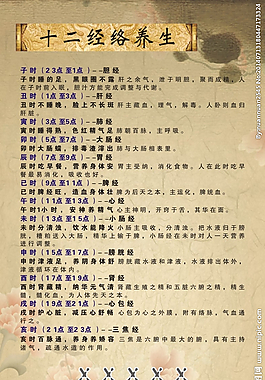 十二经络养生
子时（23点至1点）--胆经
子时睡的足，黑眼圈不露 肝之余气，泄于明胆，聚而成精，人
在子时前入眠，胆片方能完成调整与代谢。
丑时（1点至3点）--肝经
丑时不睡晚，脸上不长斑 肝主藏血、理气，解毒，人卧则血归
肝脏。
寅时（3点至5点）--肺经
寅时睡得熟，色红精气足 肺朝百脉，主呼吸。
卯时（5点至7点）--大肠经
卯时大肠蠕，排毒渣滓出 肺与大肠相表里。
辰时（7点至9点）--胃经
辰时吃早餐，营养身体安 胃主受纳，消化食物，人在此时吃早
餐最易消化，吸收也好。
巳时（9点至11点）--脾经
巳时脾经旺，造血身体壮 脾为后天之本，主运化，脾统血。
午时（11点至13点）--心经
午时1小时，安神养精气 心主神明，开窍于舌，其华在面。
未时（13点至15点）--小肠经
未时分清浊，饮水能降火 小肠主吸收，分清浊。把水液归于膀
胱，糟粕送入大肠，精华上输于脾，小肠经在未时对人一天营养
进行调整。
申时（15点至17点）--膀胱经
申时津液足，养阴身体舒 膀胱藏水液和津液，水液排出体外，
津液循环在体内。
酉时（17点至19点）--肾经
酉时肾藏精，纳华元气清 肾藏生殖之精和五脏六腑之精，精生
髓，髓化血，为人体先天之本。
戌时（19点至21点）--心包经
戌时护心脏，减压心舒畅 心包为心之外膜，附有络脉，气血通
行之。
亥时（21点至23点）--三焦经
亥时百脉通，养身养娇容 三焦是六腑中最大的腑，具有主持
诸气，疏通水道的作用。